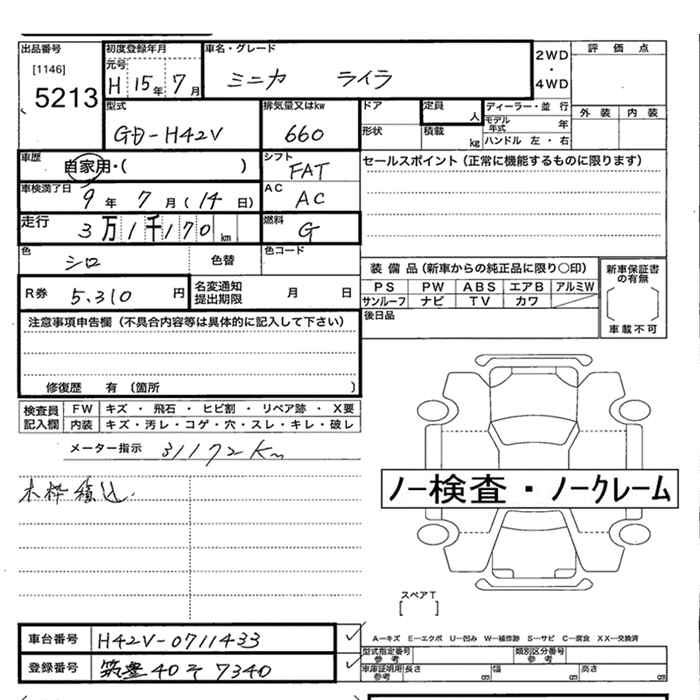 出品番号
[1146]
5213
初度登録年月
元号
H 15年 7月
車名・グレード
ミニカ ライラ
2WD
・
4WD
評 価 点
外 装 内 装
型式
GD-H42V
排気量又はkw
660
ドア
形状
定員
人
積載
kg
ディーラー・並 行
モデル年式 年
ハンドル 左・右
車歴
自家用・( )
シフト
FAT
車検満了日
9 年 7 月 ( 14 日)
AC
AC
走行
3 万 1 千 1 7 0 km
燃料
G
セールスポイント (正常に機能するものに限ります)
色
シロ
色替
色コード
R券
5,310 円
名変通知
提出期限
月 日
装 備 品 (新車からの純正品に限り○印)
PS PW ABS エアB アルミW
サンルーフ ナビ TV カワ
新車保証書
の有無
車載不可
後日品
注意事項申告欄 (不具合内容等は具体的に記入して下さい)
修復歴 有 (箇所 )
検査員
記入欄
FW キズ ・ 飛石 ・ ヒビ割 ・ リペア跡 ・ X要
内装 キズ・汚レ・コゲ・穴・スレ・キレ・破レ
メーター指示 31172Km
木枠積込.
ノー検査・ノークレーム
スペアT
[ ]
車台番号 H42V-0711433
登録番号 筑豊 40 そ 7340
A-キズ E-エクボ U-凹み W-補修跡 S-サビ C-腐食 XX-交換済
型式指定番号
参考
類別区分番号
参考
車庫証明用
参考
長さ 幅 高さ